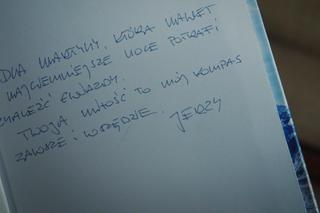 DLA MARTYNY, KTÓRA NAWET
NAJCIEMNIEJSZE NOCE POTRAFI
ZNALEŹĆ GWIAZDY.
TWOJA MIŁOŚĆ TO MÓJ KOMPAS
ZAWSZE I WSZĘDZIE.
JERZY